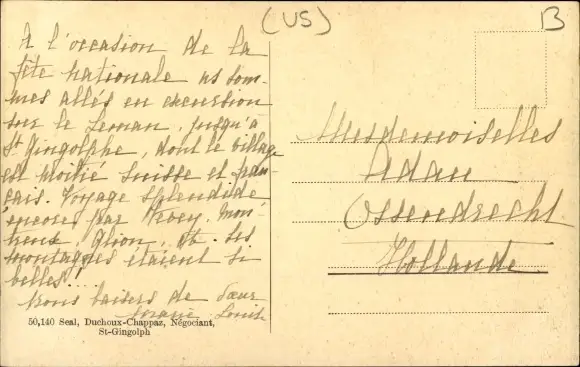 (US)
B
À l'occasion de la
fête nationale ns som-
mes allés en excursion
sur le Leman, jusqu'à
St Gingolphe, dont le village
est moitié Suisse et fran-
çais. Voyage splendide
encore par Vevey, Mon-
treux, Glion, et les
montagnes étaient si
belles!...
Bons baisers de Sœur
Marie Louise
50,140 Seal, Duchoux-Chappaz, Négociant,
St-Gingolph
Mesdemoiselles
Adan
Ossendrecht
Hollande